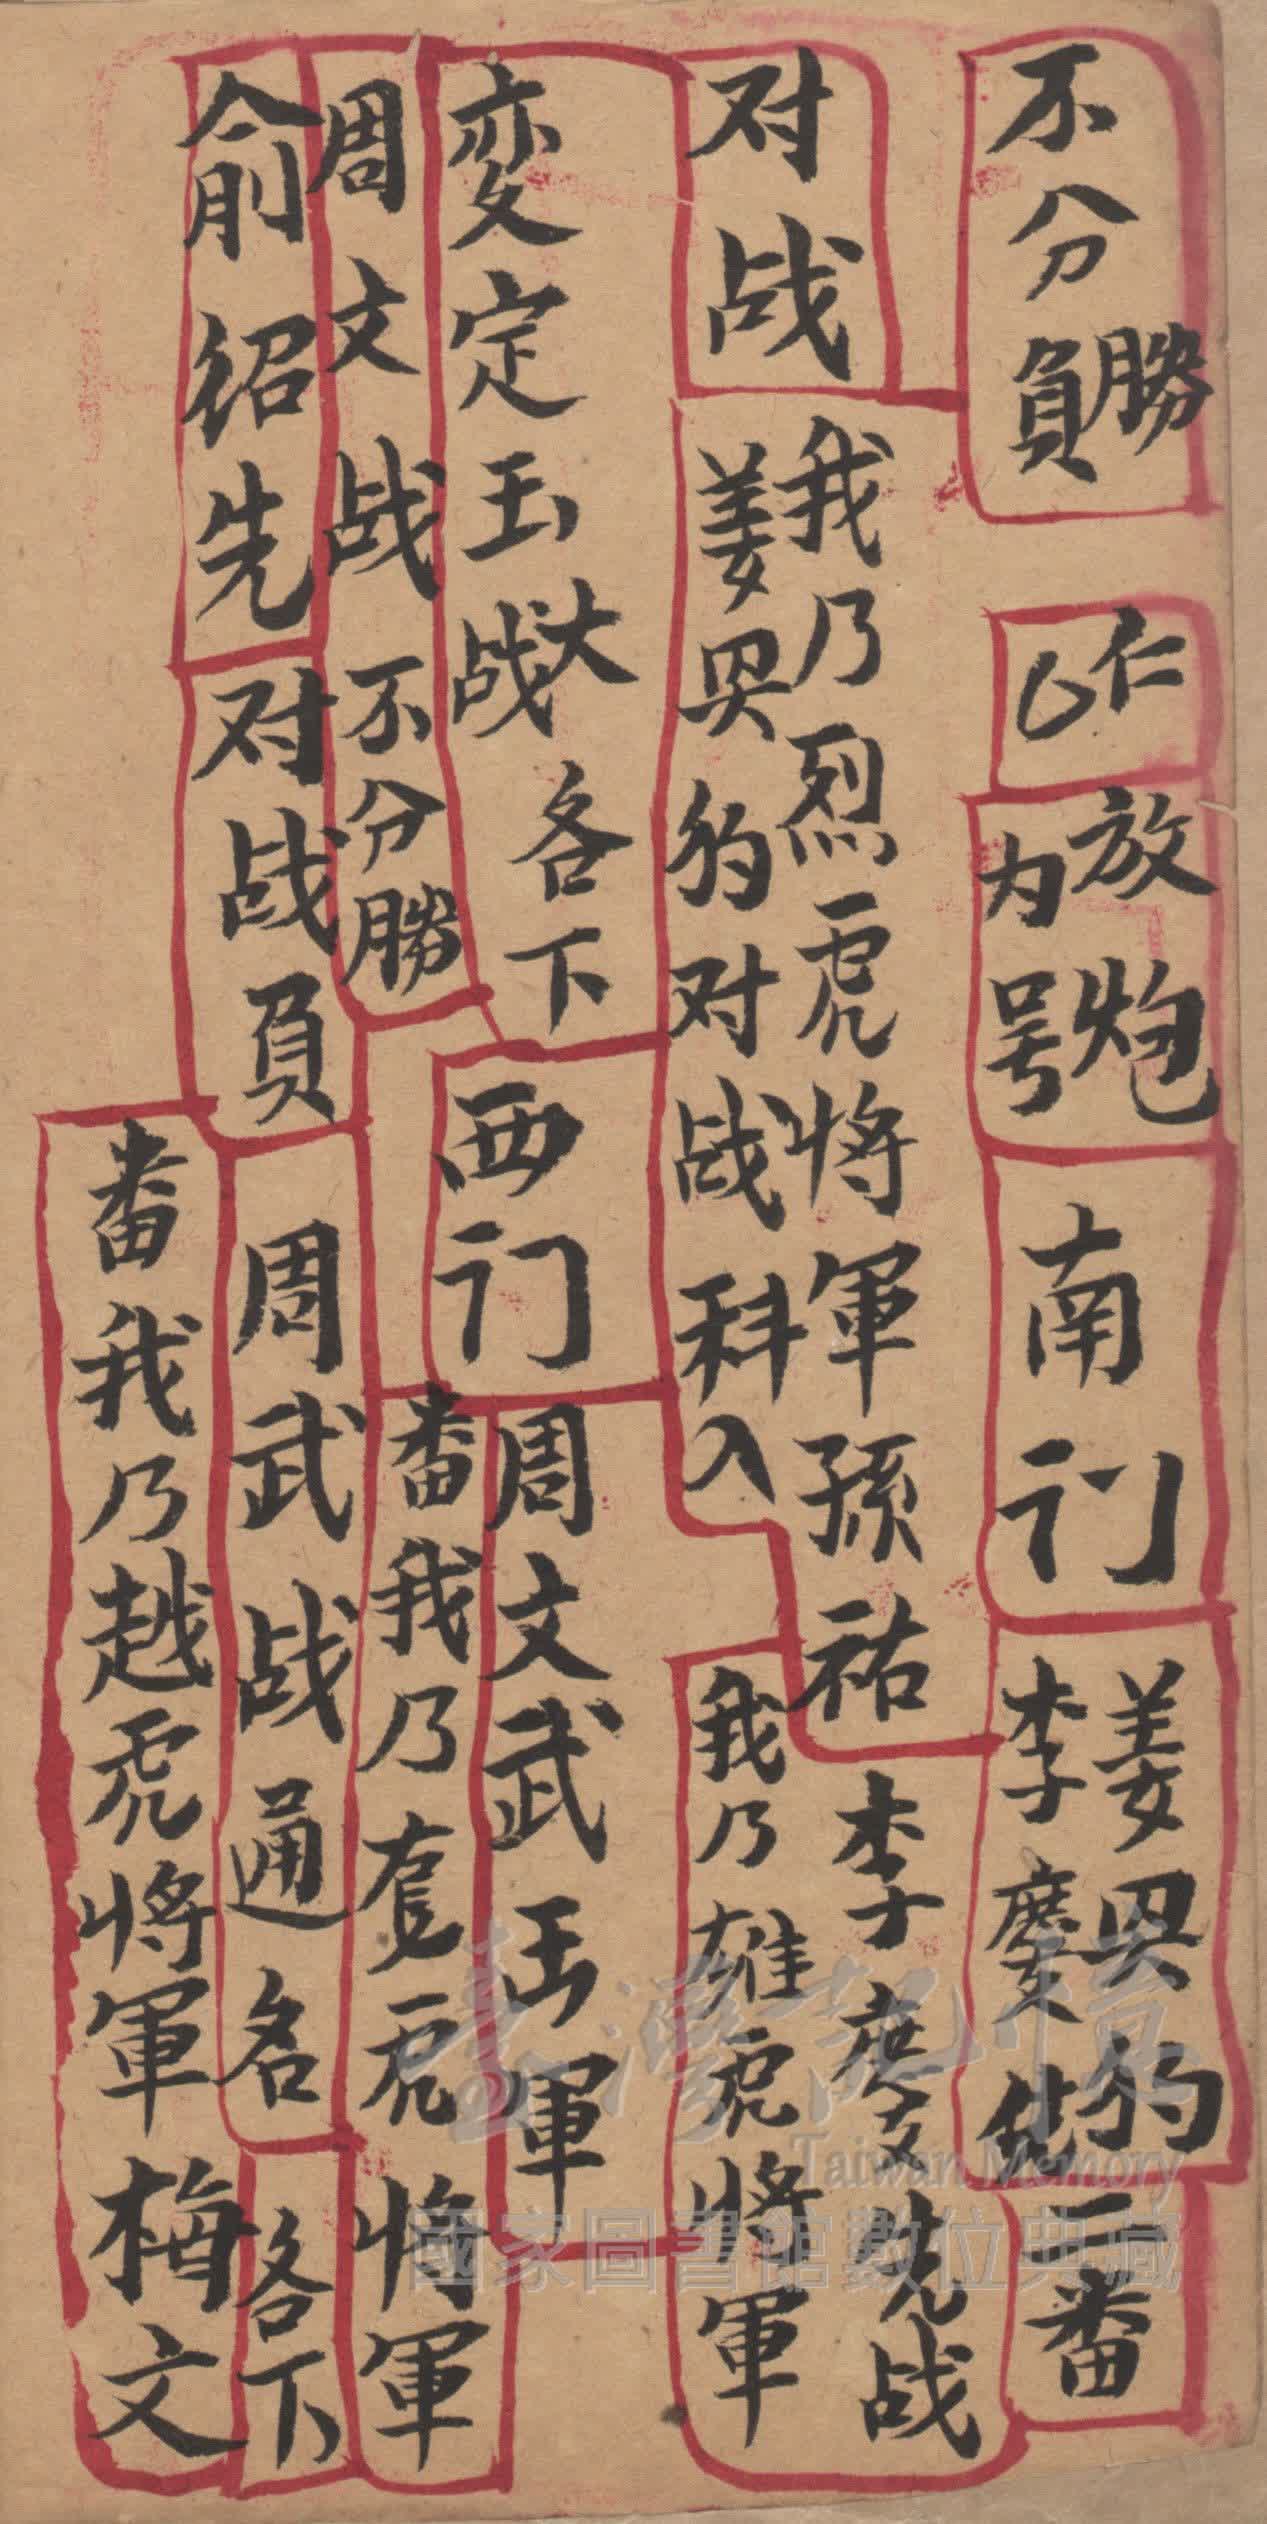 不分勝負
仁
心
放炮
为号
南门
姜哭豹
李慶先
二番
对战
我乃烈虎将軍孫祐
姜哭豹对战科入
李慶先战
我乃雄虎将軍
变定玉大战
各下
西门
周文武玉軍
周文战不分勝
番我乃奪虎将軍
俞紹先
对战負
周武战通名
各下
番我乃越虎将軍梅文
臺灣記憶
Taiwan Memory
國家圖書館數位典藏